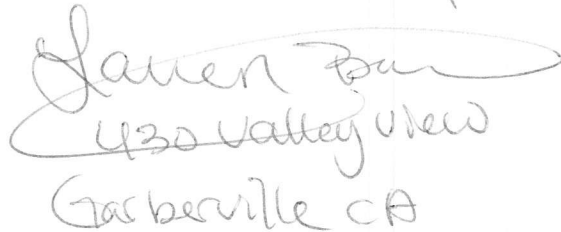 Lauren
430 Valley View
Garberville CA